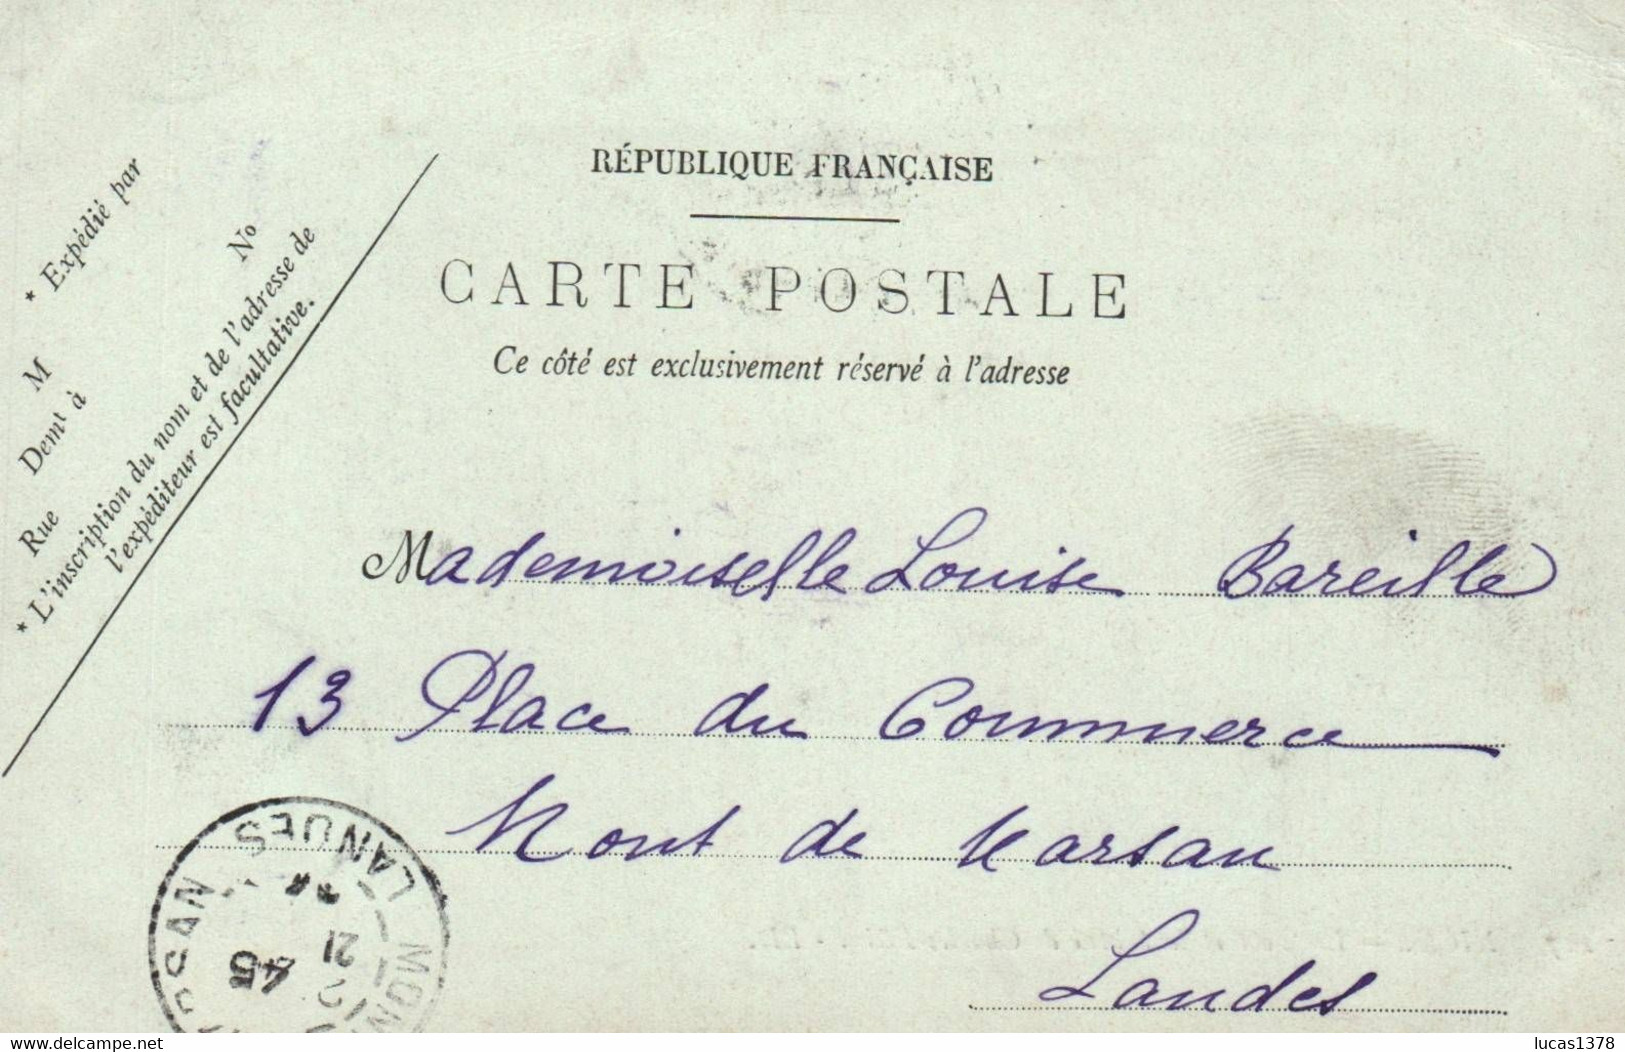 RÉPUBLIQUE FRANÇAISE
CARTE POSTALE
Ce côté est exclusivement réservé à l'adresse
* Expédié par
M
Demt à
Rue
No
* L'inscription du nom et de l'adresse de
l'expéditeur est facultative.
Mademoiselle Louise Bareille
13 Place du Commerce
Mont de Marsan
Landes
MONT
RSAN
LANDES
21
45
www.delcampe.net
lucas1378